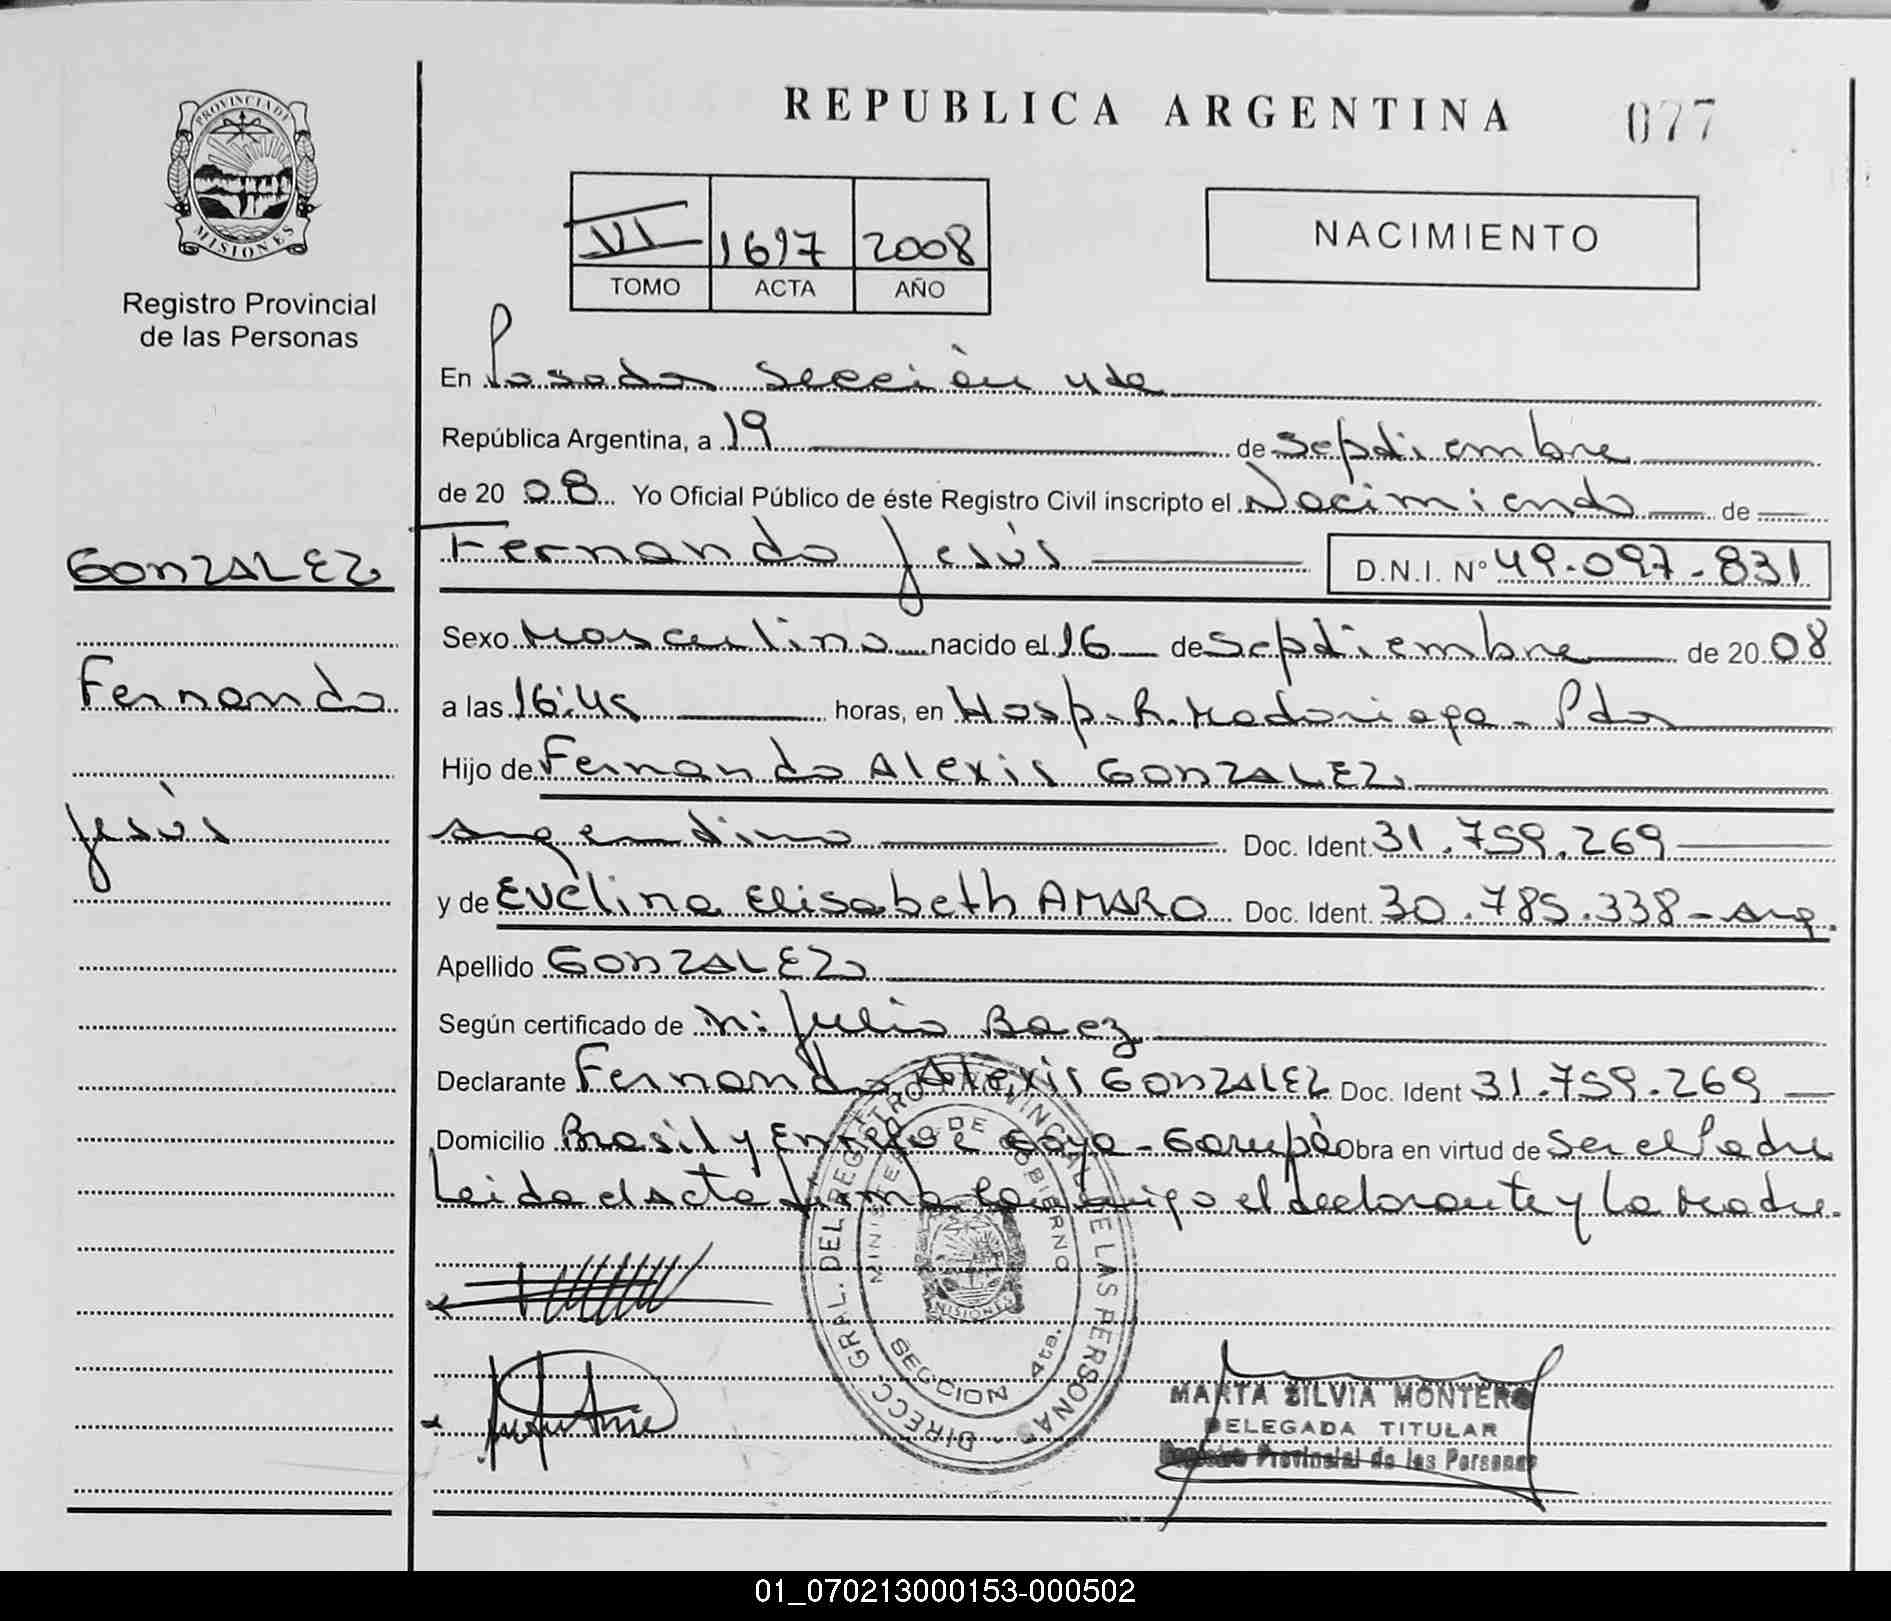 REPUBLICA ARGENTINA
077
PROVINCIA DE
MISIONES
Registro Provincial
de las Personas
VI 1697 2008
TOMO ACTA AÑO
NACIMIENTO
En Posadas Sección 4ta
República Argentina, a 19 de Septiembre
de 20 08 Yo Oficial Público de éste Registro Civil inscripto el Nacimiento de
GONZALEZ
Fernando Jesús D.N.I. N° 49.097.831
Sexo Masculino nacido el 16 de Septiembre de 20 08
Fernando
a las 16:45 horas, en Hosp. R. Madariaga - Pdas
Hijo de Fernando Alexis GONZALEZ
Jesús
Argentino Doc. Ident. 31.759.269
y de Evelina Elisabeth AMARO Doc. Ident. 30.785.338 - Arg.
Apellido GONZALEZ
Según certificado de Julio Baez
Declarante Fernando Alexis GONZALEZ Doc. Ident 31.759.269
Domicilio Brasil y Goya - Garupá Obra en virtud de Ser el Padre
Leida el Acta firma conmigo el declarante y la Madre.
DIRECC. GRAL. DEL REGISTRO PROVINCIAL DE LAS PERSONAS
MINISTERIO DE GOBIERNO
MISIONES
SECCION 4ta.
MARTA SILVIA MONTERO
DELEGADA TITULAR
Registro Provincial de las Personas
01_070213000153-000502